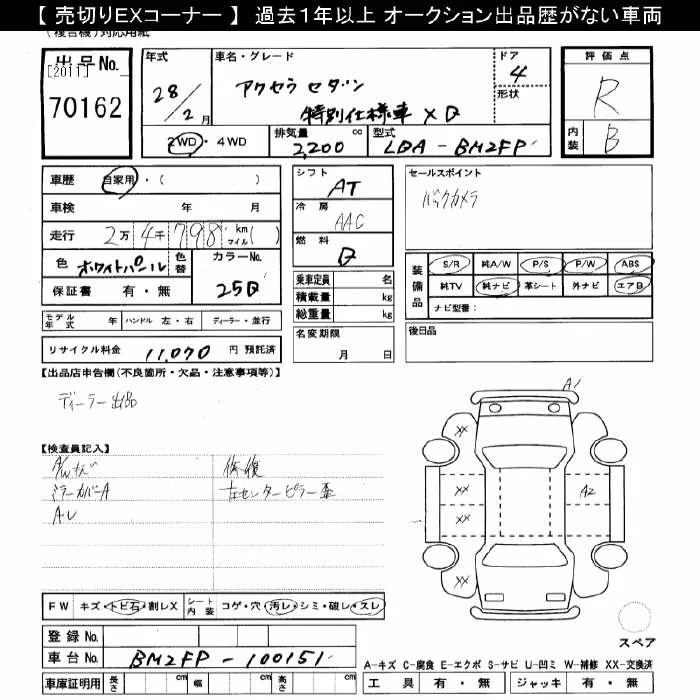 【 売切りEXコーナー 】 過去１年以上 オークション出品歴がない車両
(複合機)対応用紙
出品No.
[2011]
70162
年式
28/2月
車名・グレード
アクセラ セダン
特別仕様車 XD
ドア
4
形状
評価点
R
内装
B
2WD・4WD
排気量
2,200 cc
型式
LDA-BM2FP
車歴 自家用・( )
車検 年 月
走行 2万4千798 km マイル( )
色 ホワイトパール
色替
カラーNo.
25D
保証書 有・無
シフト
AT
冷房
AAC
燃料
D
乗車定員 名
積載量 kg
総重量 kg
セールスポイント
バックカメラ
装備品
S/R 純A/W P/S P/W ABS
純TV 純ナビ 革シート 外ナビ エアB
ナビ型番:
モデル年式 年 ハンドル 左・右 ディーラー・並行
名変期限
月 日
後日品
リサイクル料金 11,070 円 預託済
【出品店申告欄(不良箇所・欠品・注意事項等)】
ディーラー出品
【検査員記入】
修復
ミラーカバーA
左センターピラー歪
A1
XX
XX
A2
XX
XX
FW キズ・トビ石・割レX シート内装 コゲ・穴・汚レ・シミ・破レ・スレ
スペア
登録No.
車台No. BM2FP-100151
A-キズ C-腐食 E-エクボ S-サビ U-凹ミ W-補修 XX-交換済
車庫証明用 長さ cm 幅 cm 高さ cm
工具 有・無 ジャッキ 有・無